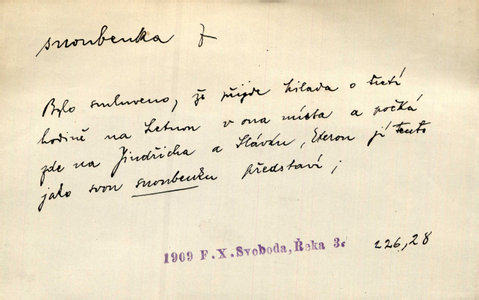 snoubenka f
Bylo smluveno, že přijde Milada o třetí
hodině na Letnou v ona místa a počká
zde na Jindřicha a Slávku, kterou jí tento
jako svou snoubenku představí;
1909 F. X. Svoboda, Řeka 3.
226,28